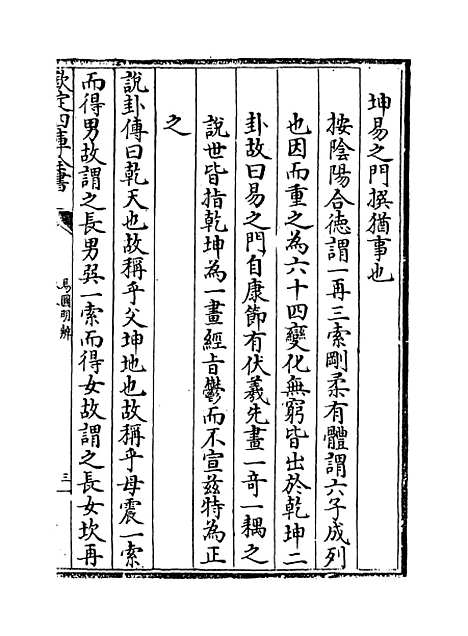 坤易之門撰猶事也
按陰陽合德謂一再三索剛柔有體謂六子成列
也因而重之為六十四變化無窮皆出於乾坤二
卦故曰易之門自康節有伏羲先畫一奇一耦之
說世皆指乾坤為一畫經旨鬱而不宣兹特為正
之
說卦傳曰乾天也故稱乎父坤地也故稱乎母震一索
而得男故謂之長男巽一索而得女故謂之長女坎再
欽定四庫全書
易圖明辨